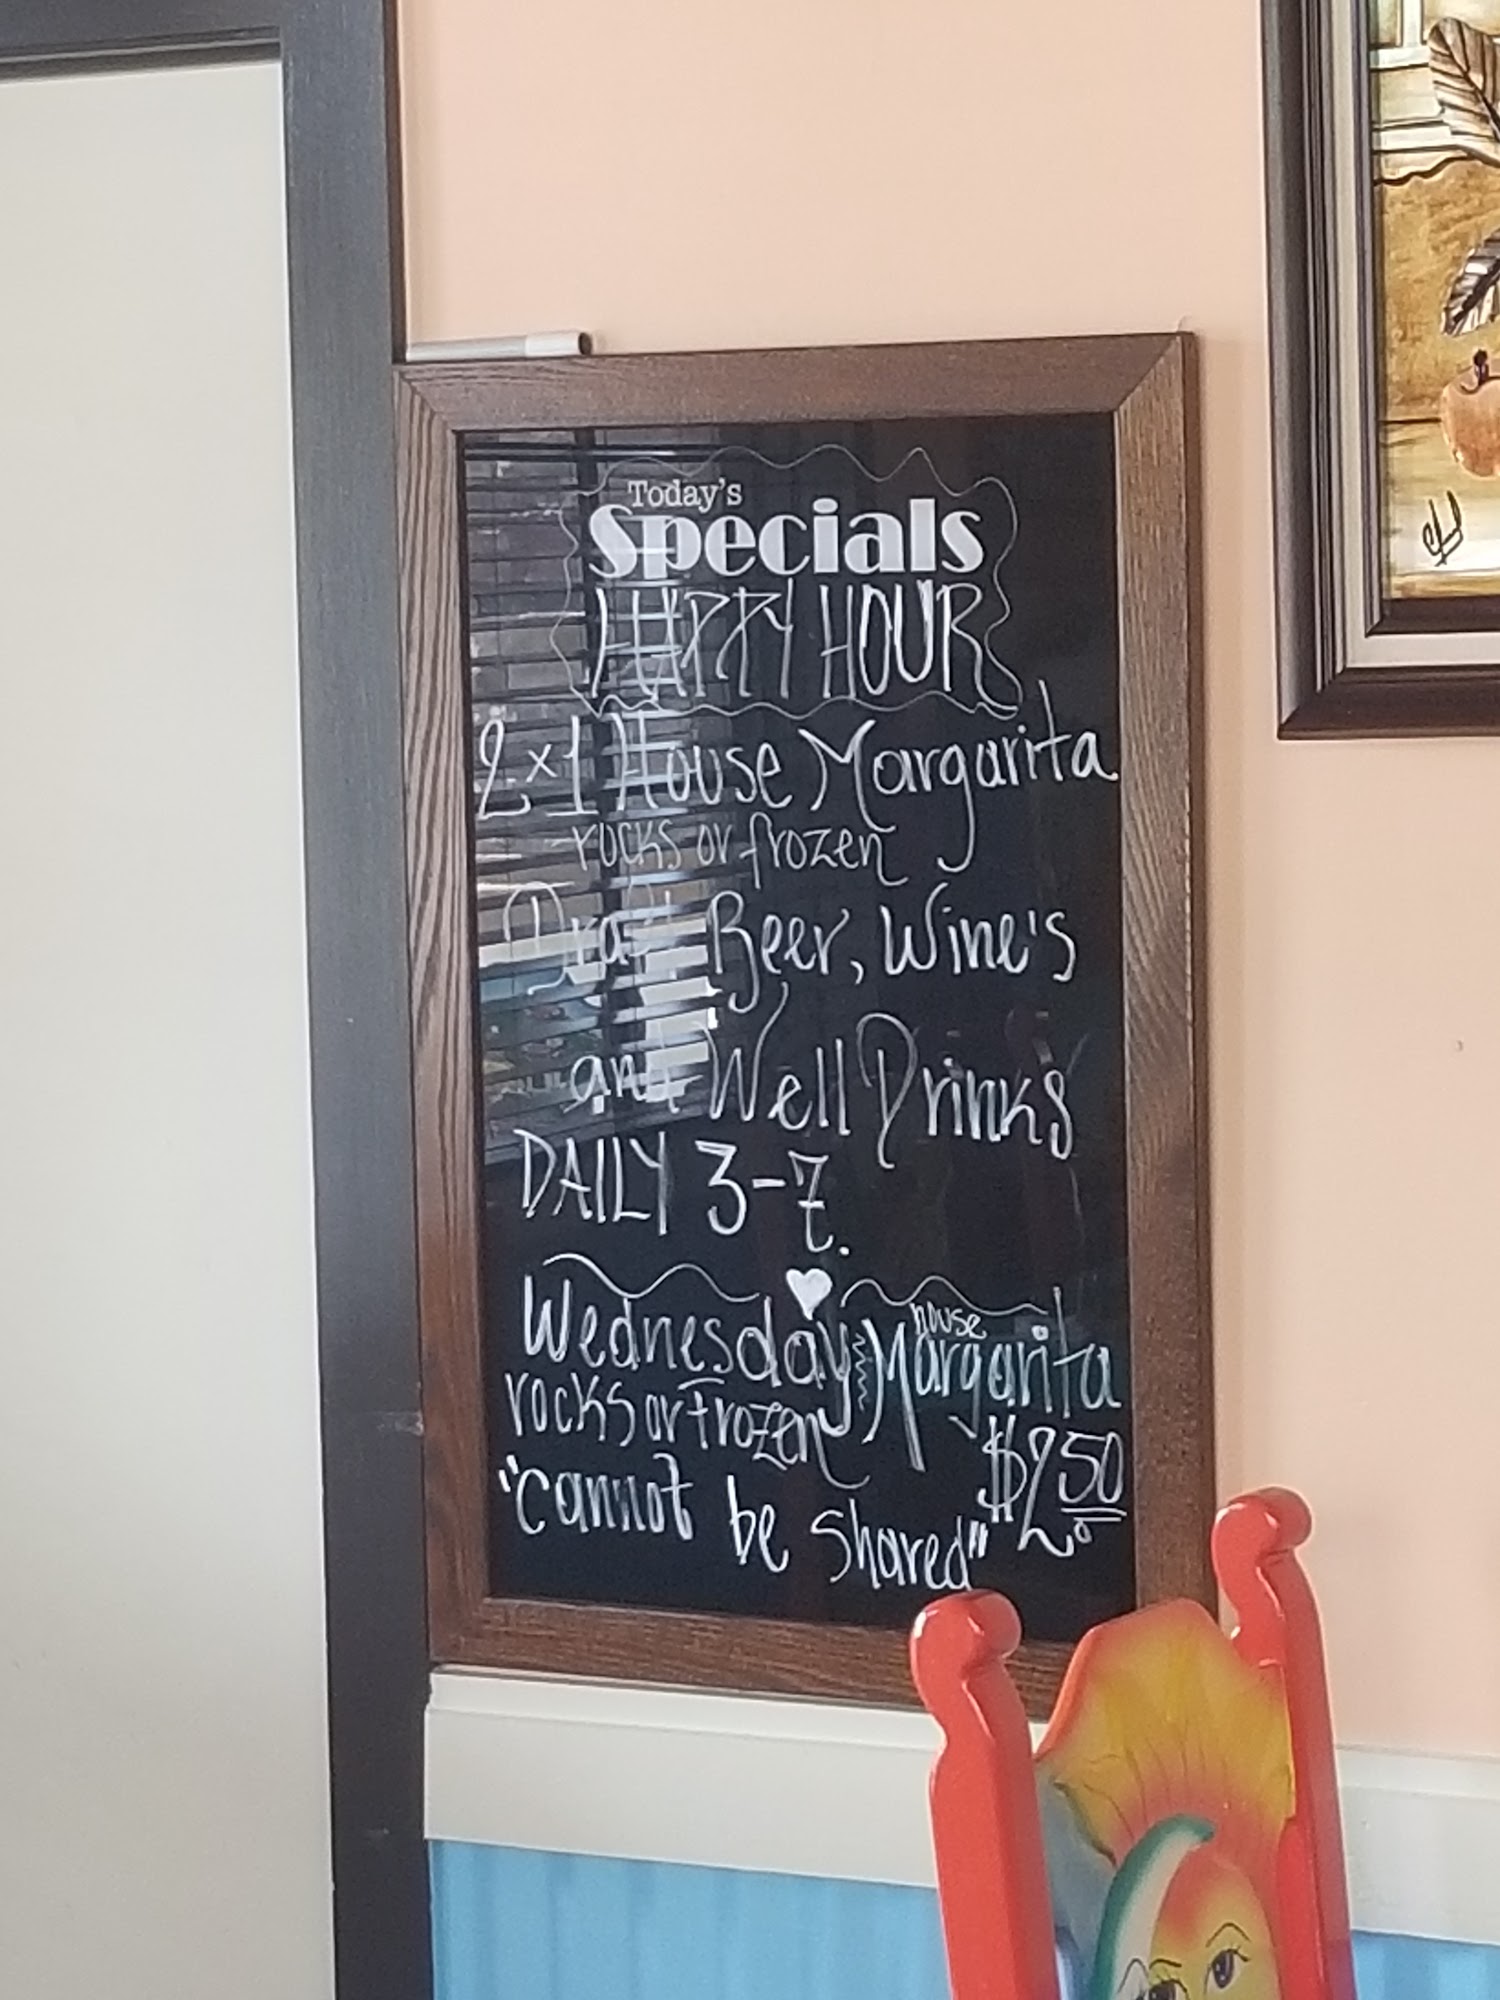 Today's
Specials
HAPPY HOUR
2x1 House Margarita
rocks or frozen
Draft Beer, Wine's
and Well Drinks
DAILY 3-7.
Wednesday house Margarita
rocks or frozen $2 50
"cannot be shared"